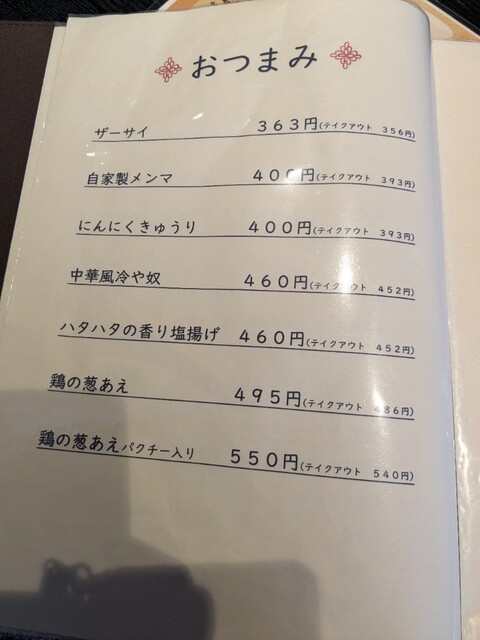 おつまみ
ザーサイ 363円(テイクアウト 356円)
自家製メンマ 400円(テイクアウト 393円)
にんにくきゅうり 400円(テイクアウト 393円)
中華風冷や奴 460円(テイクアウト 452円)
ハタハタの香り塩揚げ 460円(テイクアウト 452円)
鶏の葱あえ 495円(テイクアウト 486円)
鶏の葱あえパクチー入り 550円(テイクアウト 540円)